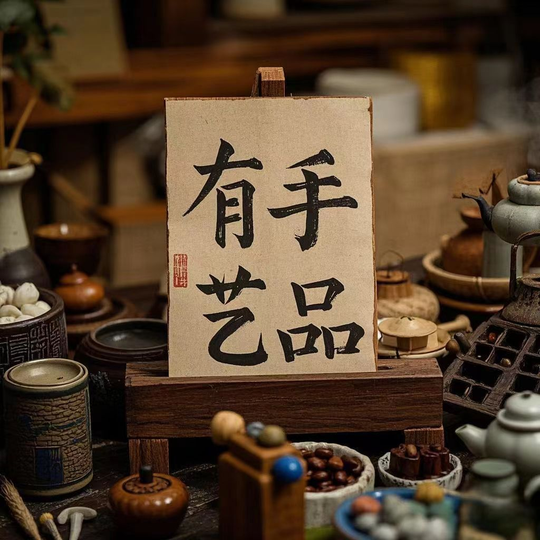 有手
艺品